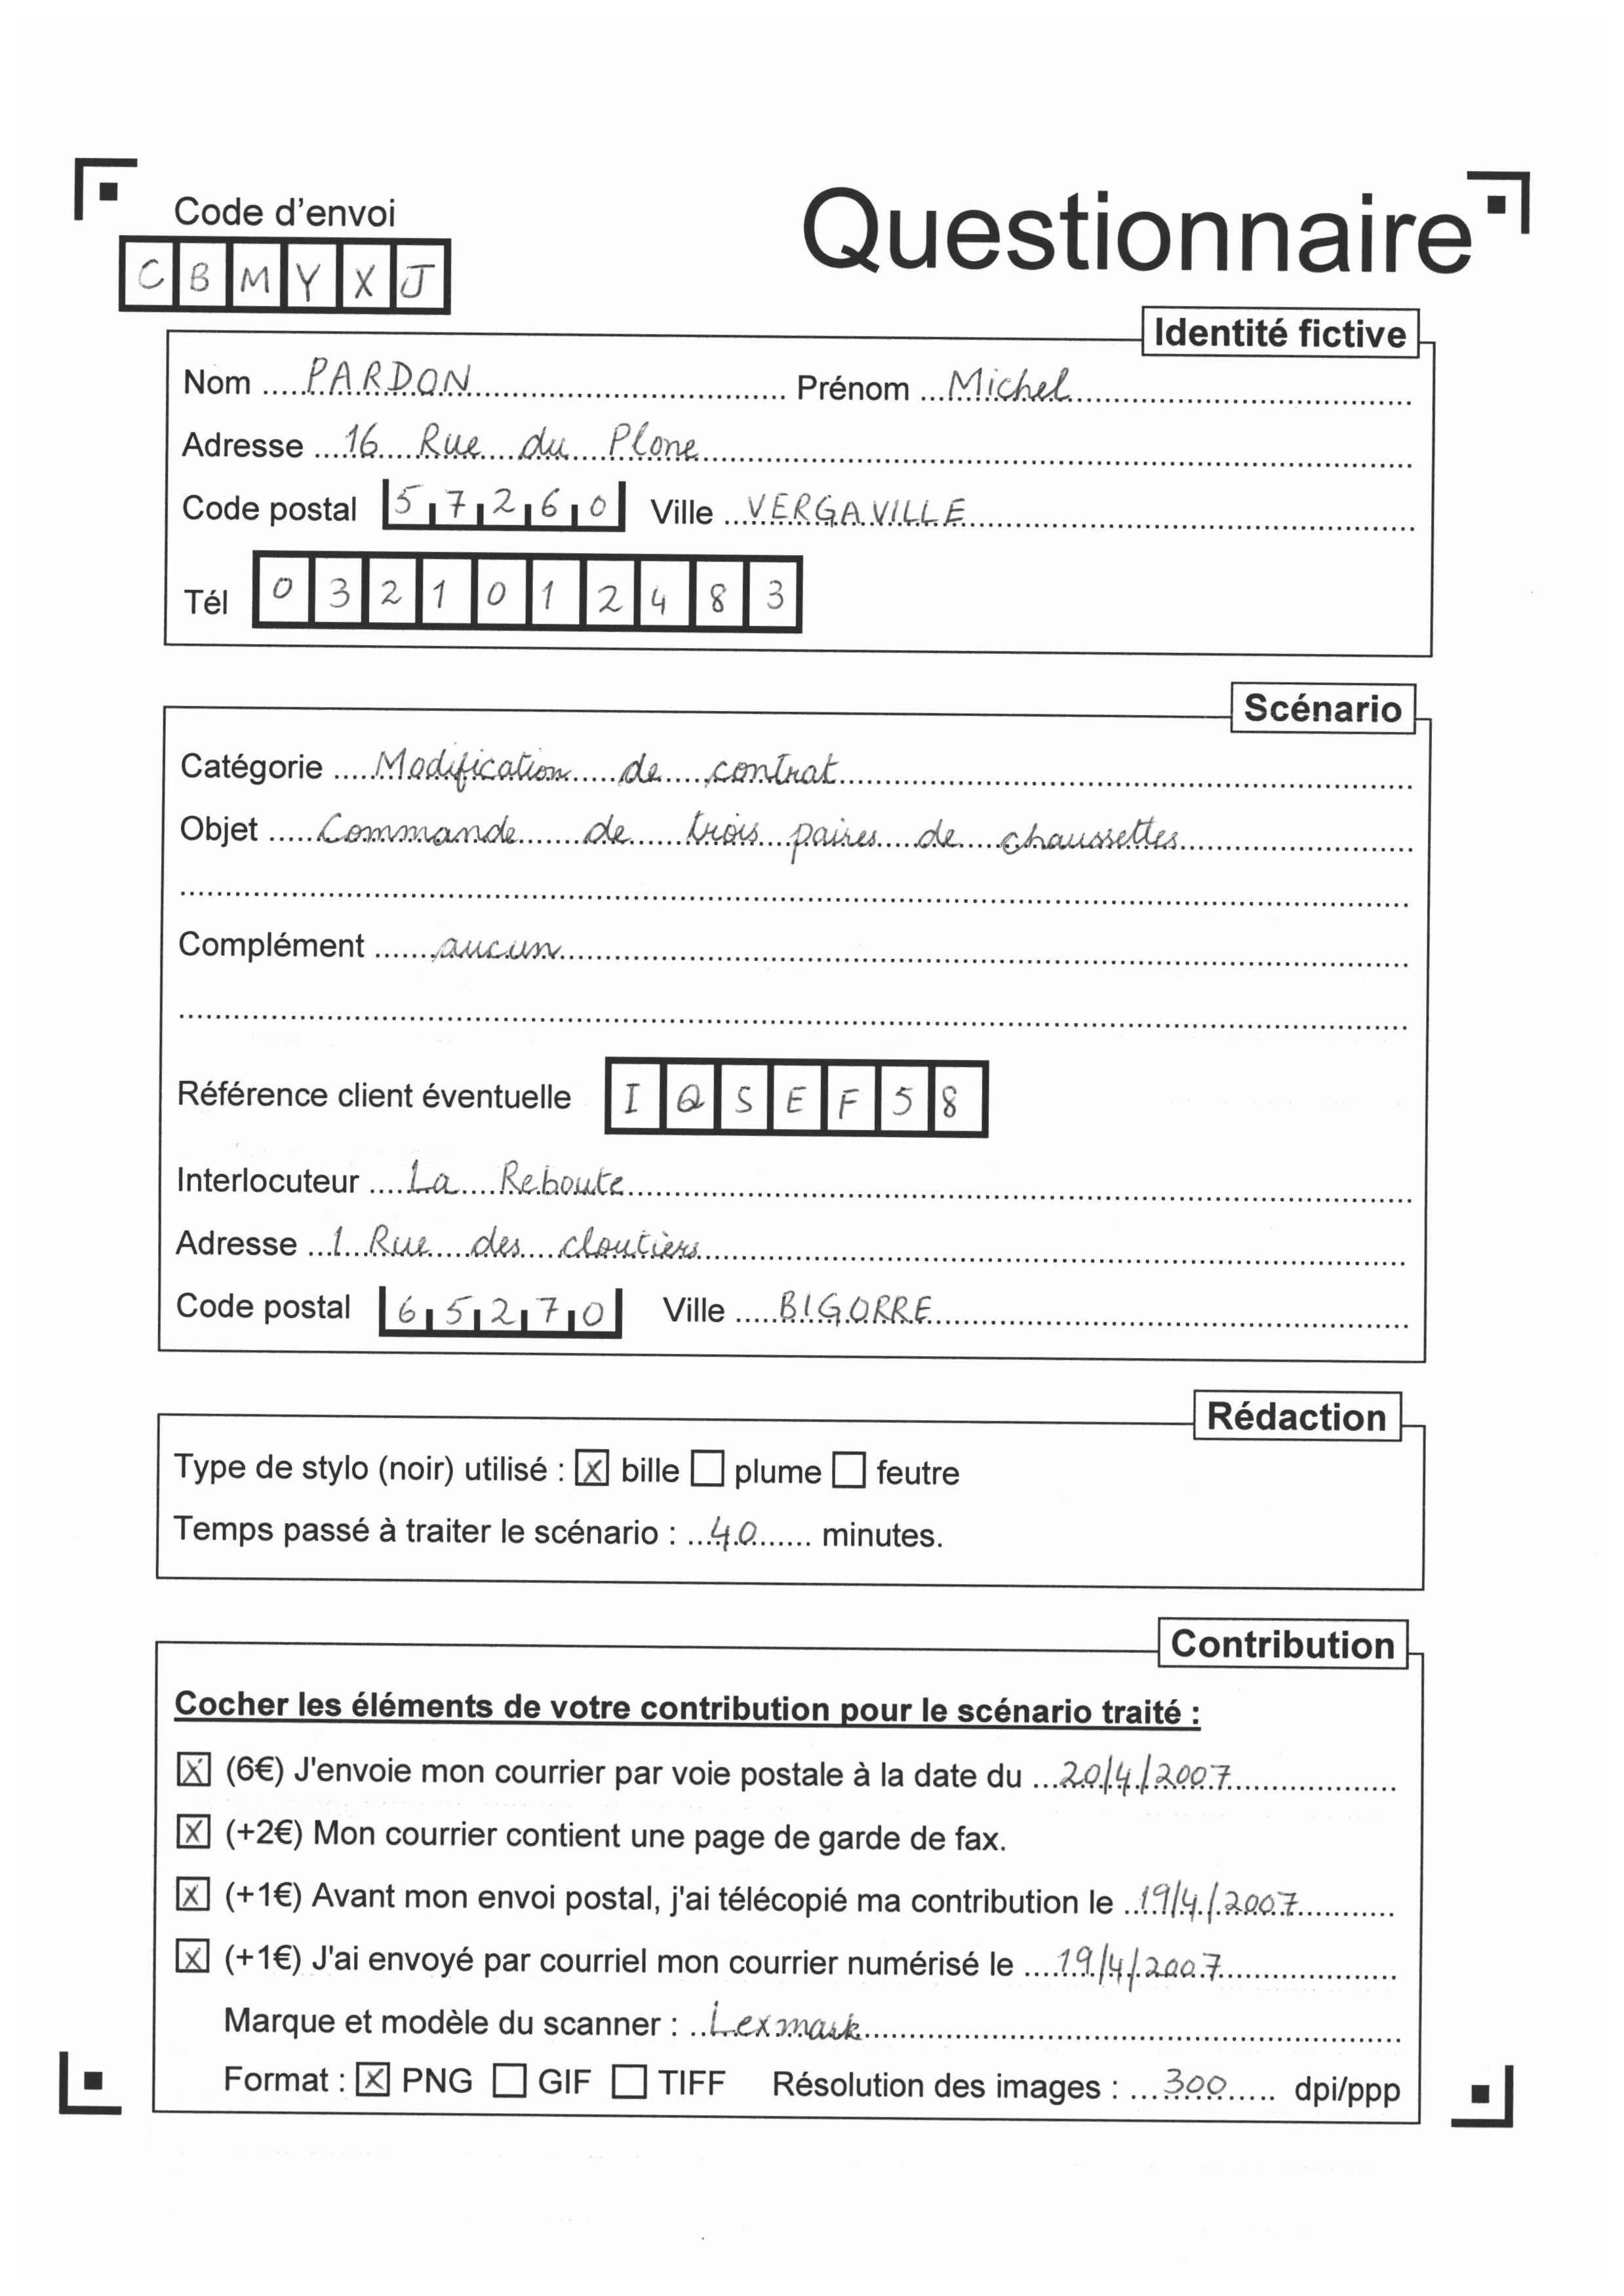 Code d'envoi
CBMYXJ
Questionnaire
Identité fictive
Nom PARDON Prénom Michel
Adresse 16 Rue du Plone
Code postal 57260 Ville VERGAVILLE
Tél 0321012483
Scénario
Catégorie Modification de contrat
Objet Commande de trois paires de chaussettes
Complément aucun
Référence client éventuelle IQSEF58
Interlocuteur La Reboute
Adresse 1 Rue des cloutiers
Code postal 65270 Ville BIGORRE
Rédaction
Type de stylo (noir) utilisé : X bille plume feutre
Temps passé à traiter le scénario : 40 minutes.
Contribution
Cocher les éléments de votre contribution pour le scénario traité :
X (6€) J'envoie mon courrier par voie postale à la date du 20/4/2007
X (+2€) Mon courrier contient une page de garde de fax.
X (+1€) Avant mon envoi postal, j'ai télécopié ma contribution le 19/4/2007
X (+1€) J'ai envoyé par courriel mon courrier numérisé le 19/4/2007
Marque et modèle du scanner : Lexmark
Format : X PNG GIF TIFF Résolution des images : 300 dpi/ppp